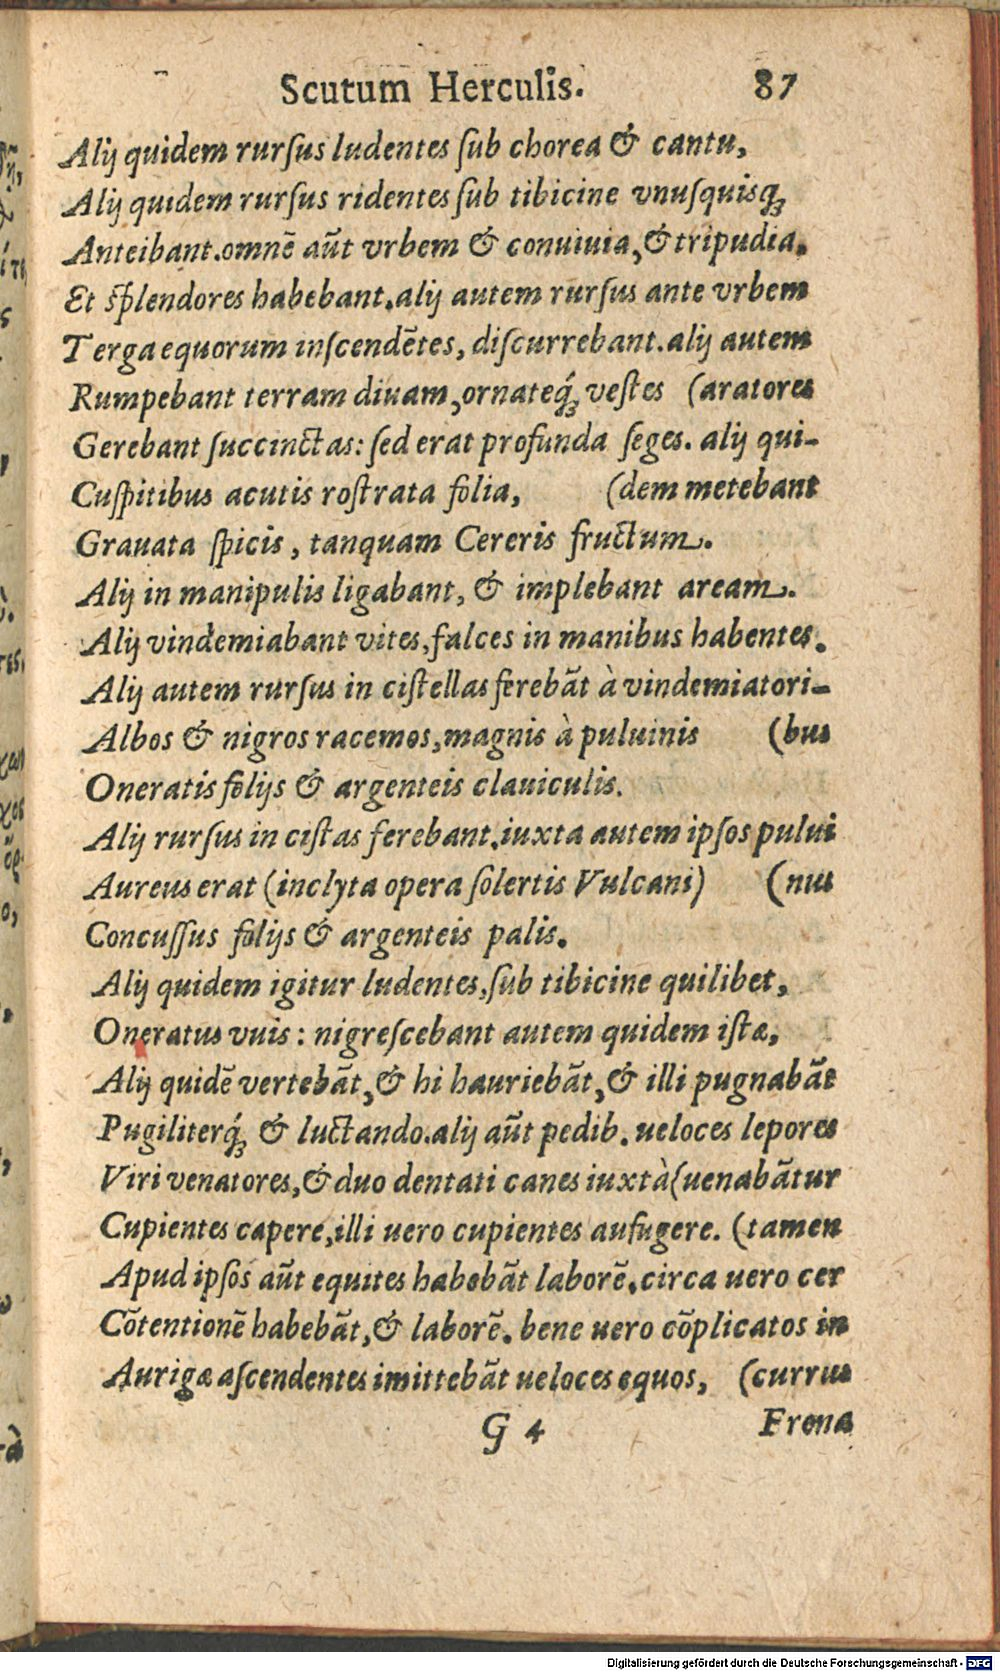 Scutum Herculis. 87
Alij quidem rurſus ludentes ſub chorea & cantu,
Alij quidem rurſus ridentes ſub tibicine vnuſquisq́ꝫ
Anteibant.omnē aūt vrbem & conuiuia,& tripudia.
Et ſplendores habebant.alij autem rurſus ante vrbem
Terga equorum inſcendētes, diſcurrebant.alij autem
Rumpebant terram diuam,ornateq́ꝫ veſtes (aratores
Gerebant ſuccinctas: ſed erat profunda ſeges. alij qui-
Cuſpitibus acutis roſtrata folia, (dem metebant
Grauata ſpicis, tanquam Cereris fructum.
Alij in manipulis ligabant, & implebant aream.
Alij vindemiabant vites,falces in manibus habentes.
Alij autem rurſus in ciſtellas ferebāt à vindemiatori-
Albos & nigros racemos,magnis à puluinis (bus
Oneratis folijs & argenteis clauiculis.
Alij rurſus in ciſtas ferebant.iuxta autem ipſos pului
Aureus erat (inclyta opera ſolertis Vulcani) (nus
Concuſſus folijs & argenteis palis.
Alij quidem igitur ludentes,ſub tibicine quilibet,
Oneratus vuis: nigreſcebant autem quidem iſtæ,
Alij quidē vertebāt,& hi hauriebāt,& illi pugnabāt
Pugiliterq́ꝫ & luctando.alij aūt pedib. ueloces lepores
Viri venatores,& duo dentati canes iuxtà (uenabātur
Cupientes capere,illi uero cupientes aufugere. (tamen
Apud ipſos aūt equites habebāt laborē.circa uero cer
Cōtentionē habebāt,& laborē. bene uero cōplicatos in
Aurigæ aſcendentes imittebāt ueloces equos, (currus
G 4 Frena
Digitalisierung gefördert durch die Deutsche Forschungsgemeinschaft - DFG